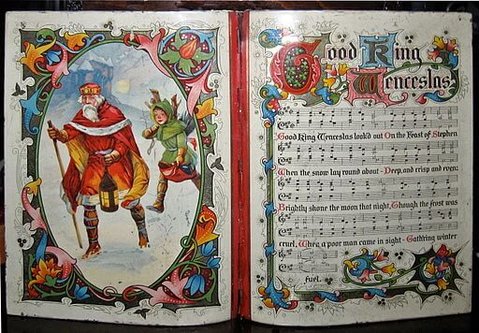 Good King
Wenceslas.
Good King Wenceslas look'd out On the Feast of Stephen
When the snow lay round about - Deep, and crisp and even:
Brightly shone the moon that night, Though the frost was
cruel, When a poor man came in sight - Gath'ring winter
fuel.